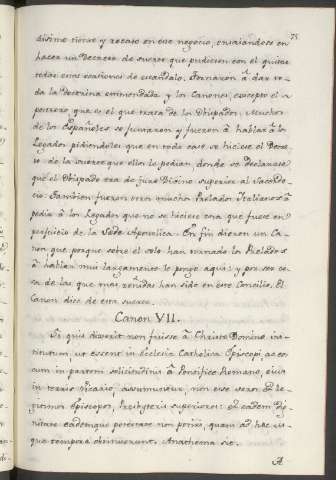 75
disimo tiento y recato en este negocio, enviandose en
hacer un Decreto de suerte que pudiesen con el quitar
todas estas ocasiones de escandalo. Tornaron à dar to-
da la doctrina emmendada y los Canones, excepto el
postrero que es el que trata de los Obispados. Muchos
de los Españoles se juntaron y fueron à hablar à los
Legados pidiendoles que en todo caso se hiciese el Decre-
to de la suerte que ellos le pedian, donde se declarase
que el Obispado era de jure Divino superior al Sacerdo-
cio. Tambien fueron otros muchos Prelados Italianos à
pedir à los Legados que no se hiciese cosa que fuese en
perjuicio de la Sede Apostolica. En fin dieron un Ca-
non que porque sobre el solo han tornado los Prelados
à hablar mui largamente le pongo aqui: y por ser co-
sa de las que mas reñidas han sido en este Concilio. El
Canon dice de esta suerte.
Canon VII.
Si quis dixerit non fuisse à Christo Domino ins-
titutum ut essent in Ecclesia Catholica Episcopi, ac eo-
rum in partem solicitudinis à Pontifice Romano, eius
in terris Vicario, assumuntur, non esse veros et le-
gitimos Episcopos, Presbyteris superiores: et eadem dig-
nitate eademque potestate non potiri, quam ad hæc us-
que tempora obtinuerunt. Anathema sit.
A